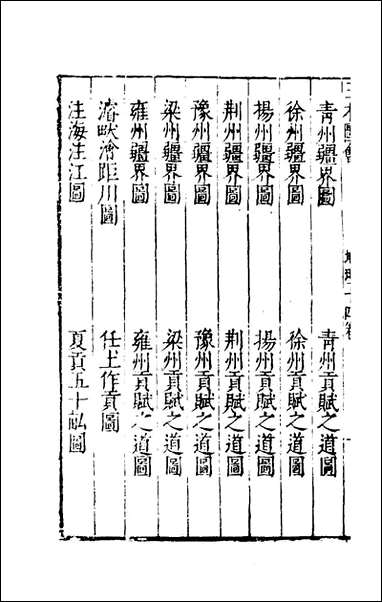 三才圖會 地理十四卷
青州疆界圖 青州貢賦之道圖
徐州疆界圖 徐州貢賦之道圖
揚州疆界圖 揚州貢賦之道圖
荆州疆界圖 荆州貢賦之道圖
豫州疆界圖 豫州貢賦之道圖
梁州疆界圖 梁州貢賦之道圖
雍州疆界圖 雍州貢賦之道圖
濬畎澮距川圖 任土作貢圖
注海注江圖 夏貢五十畝圖